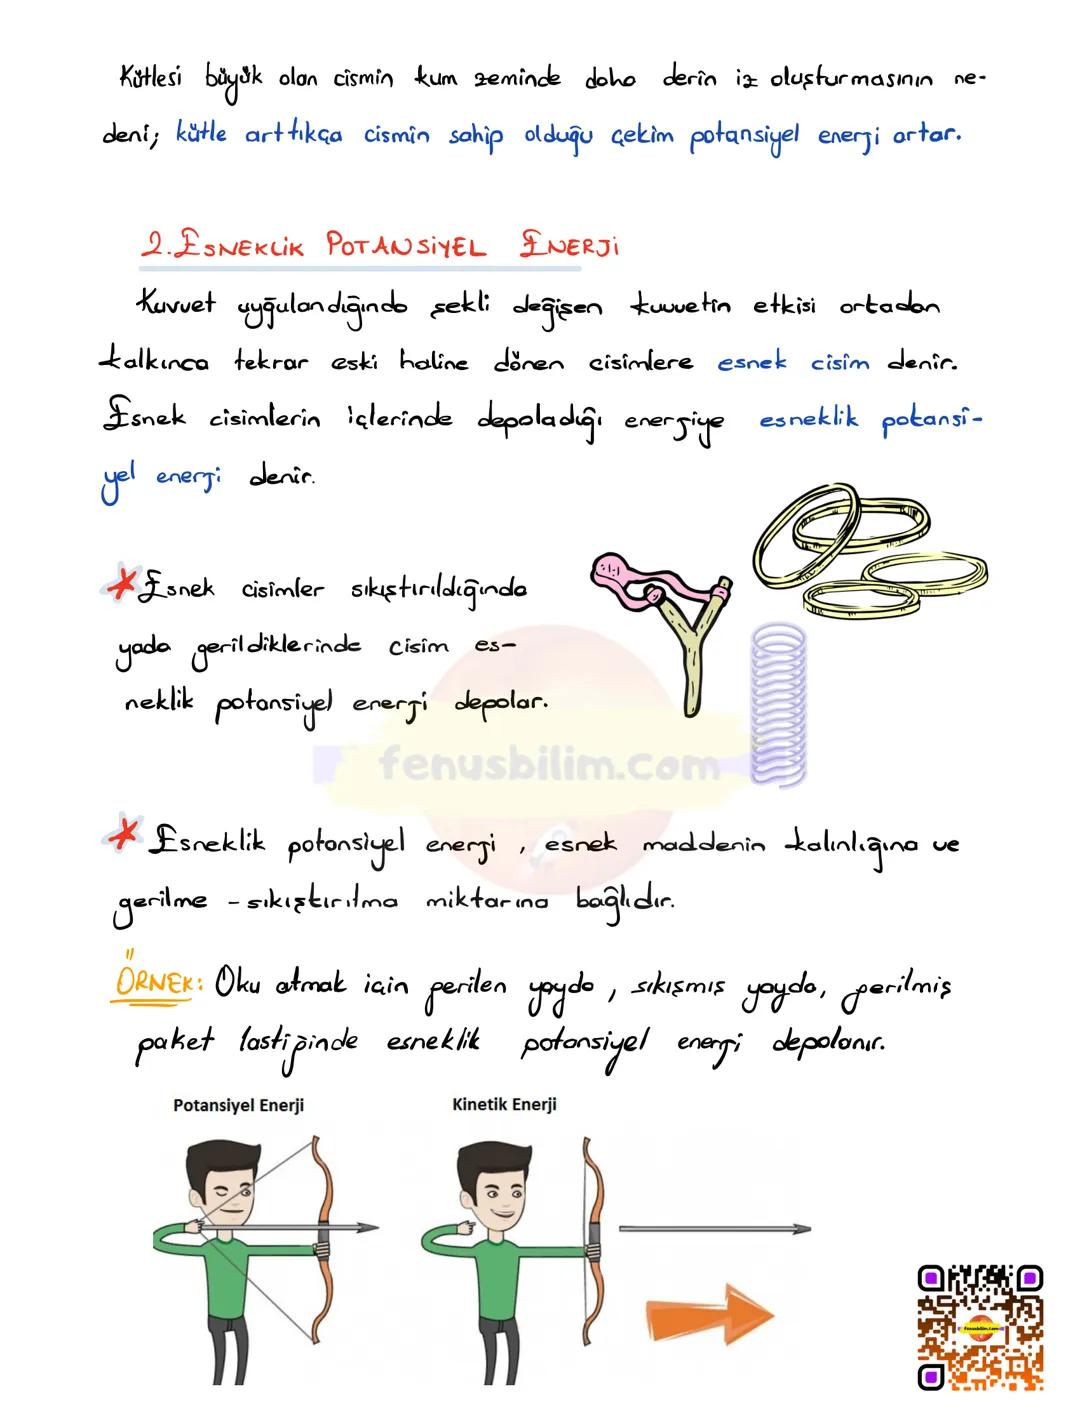 Kütlesi büyük olan cismin kum zeminde daha derin iz oluşturmasının ne-
deni; kütle arttıkça cismin sahip olduğu çekim potansiyel enerji artar.
2. ESNEKLİK POTANSİYEL ENERJİ
Kuvvet uyğulandığında şekli değişen kuvvetin etkisi ortadan
kalkınca tekrar eski haline dönen cisimlere esnek cisim denir.
Esnek cisimlerin içlerinde depoladığı enerjiye esneklik potansi-
yel enerji denir.
Esnek cisimler sıkıştırıldığında
yada gerildiklerinde cisim es-
neklik potansiyel enerji depolar.
fenusbilim.com
Esneklik potansiyel enerji, esnek maddenin kalınlığına ve
gerilme - sıkıştırılma miktarına bağlıdır.
ÖRNEK: Oku atmak için gerilen yayda, sıkışmış yayda, gerilmiş
paket lastiğinde esneklik potansiyel enerji depolanır.
Potansiyel Enerji
Kinetik Enerji
fenusbilim.com